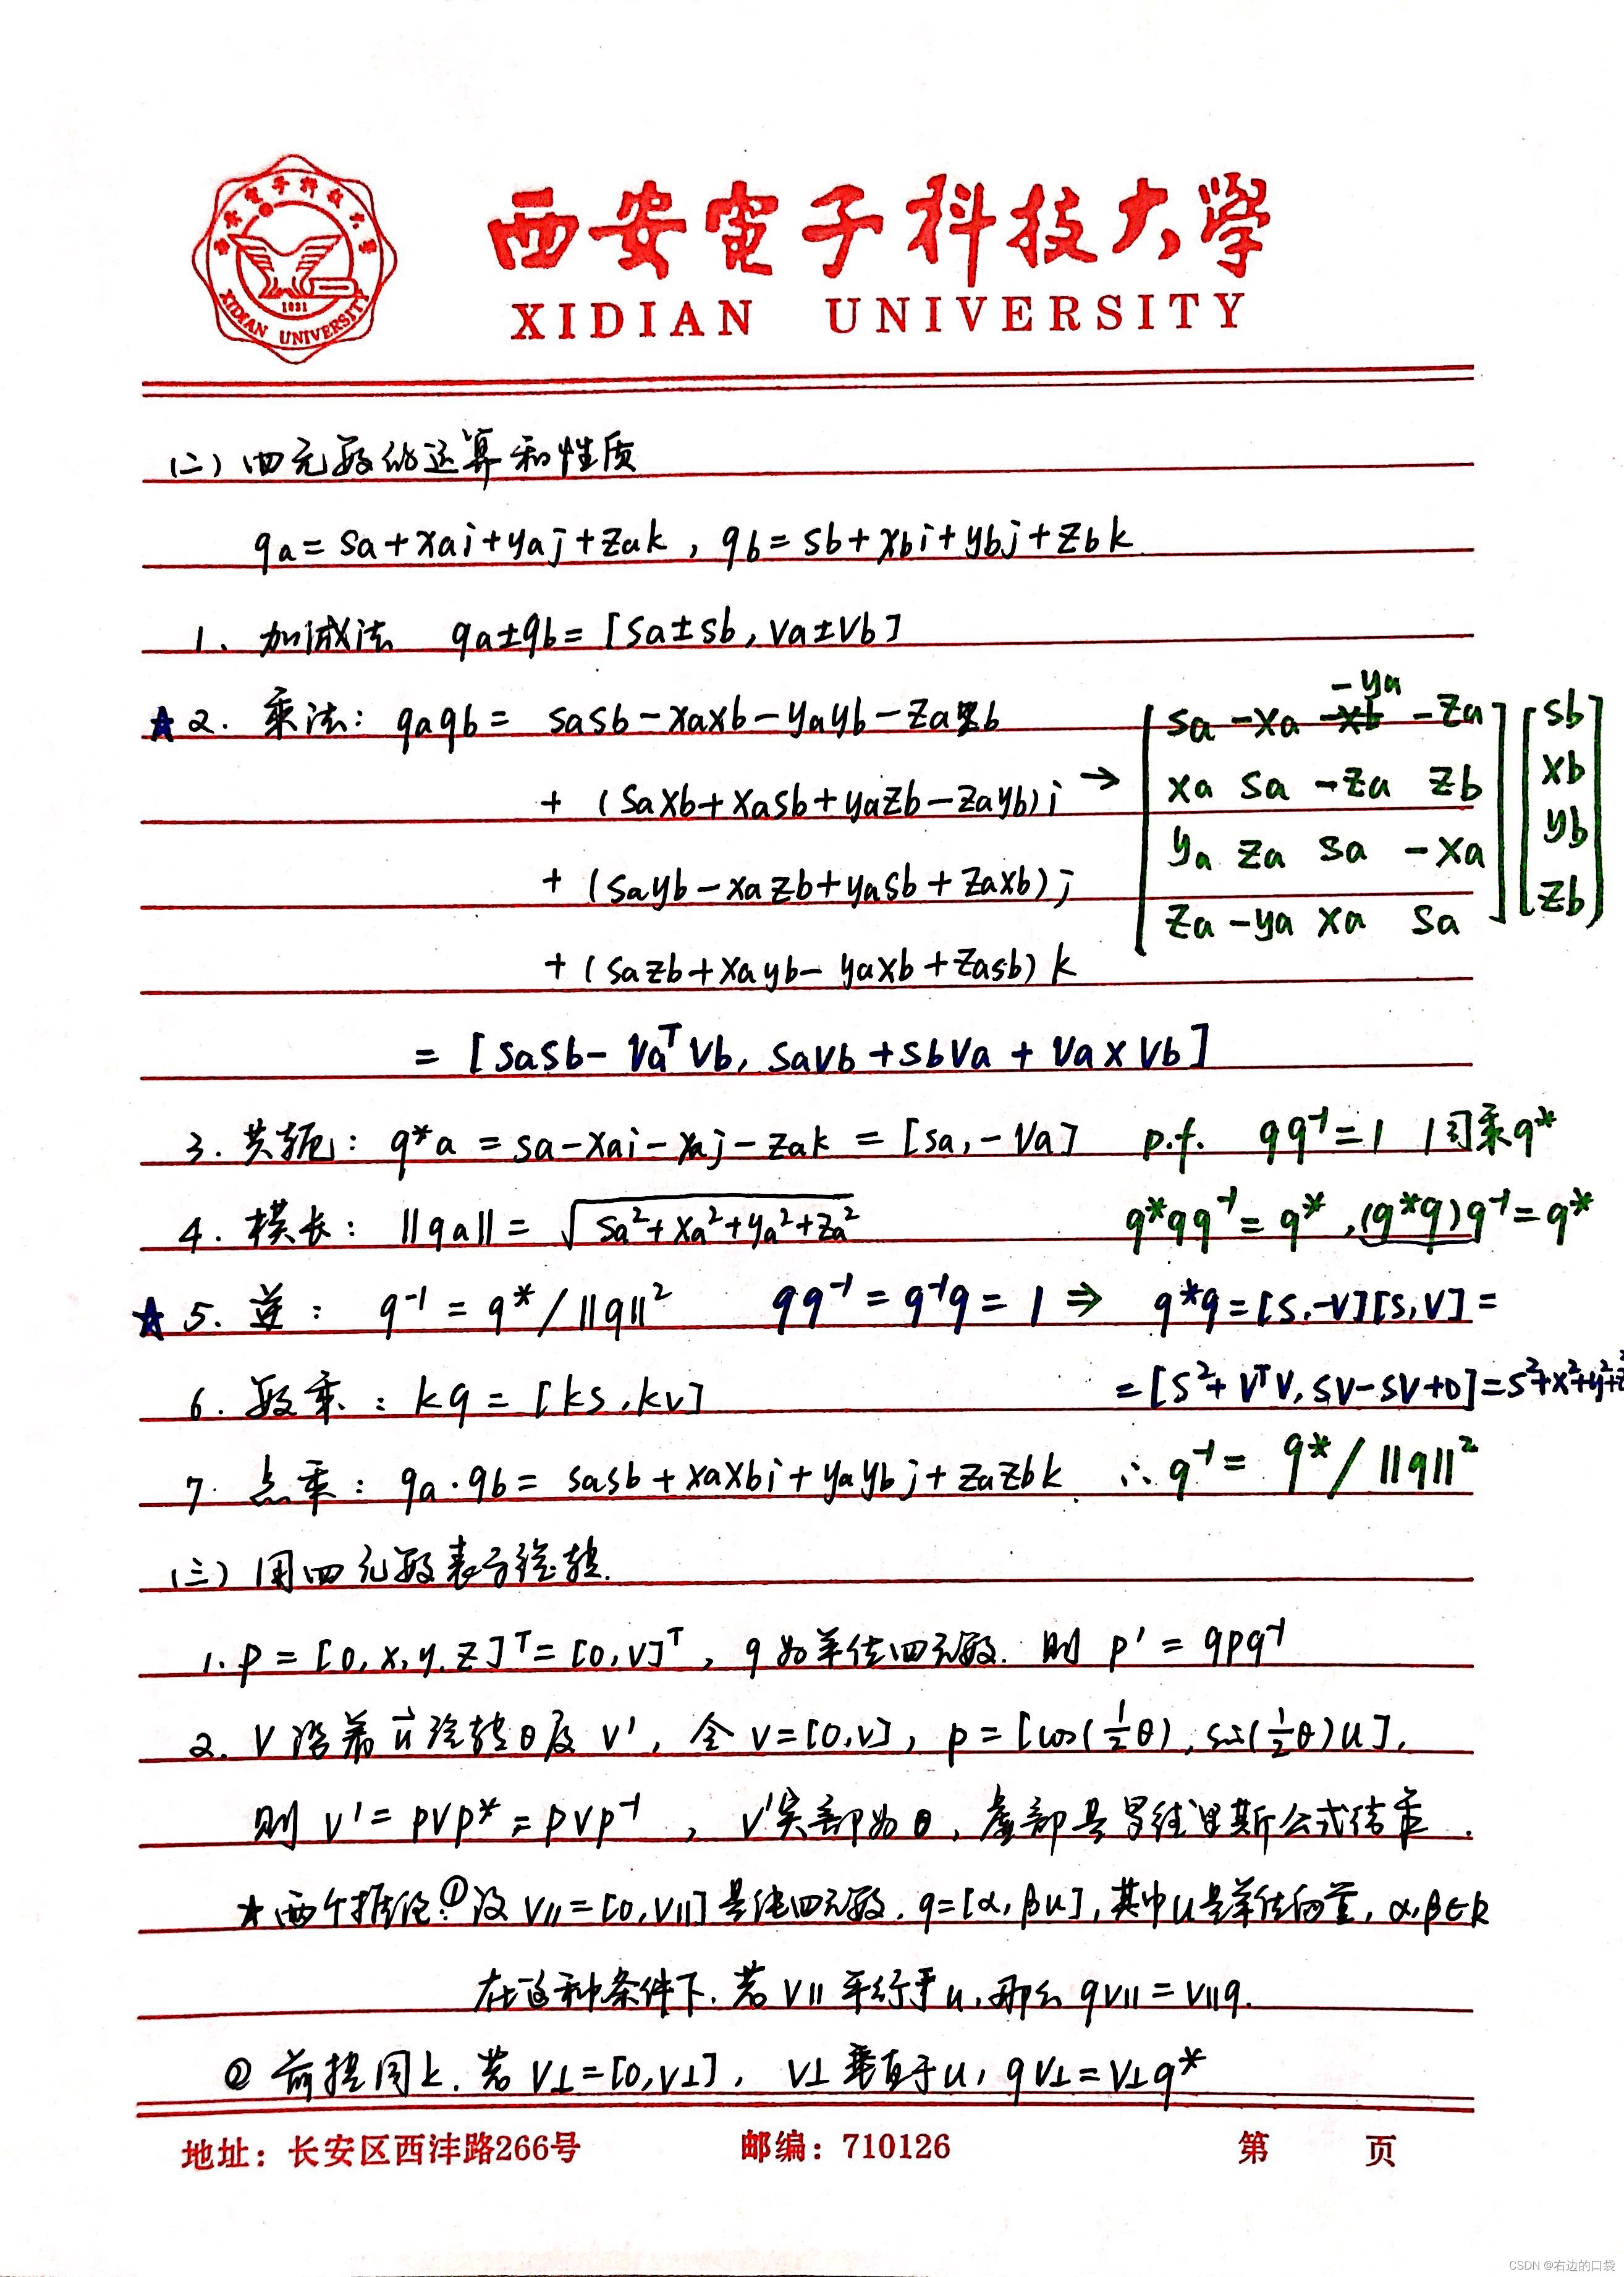 西安電子科技大學
XIDIAN UNIVERSITY
西安電子科技大學
1931
XIDIAN UNIVERSITY
(二) 四元数的运算和性质
qa = sa + xai + yaj + zak , qb = sb + xbi + ybj + zbk
1. 加减法 qa±qb = [sa±sb, va±vb]
★2. 乘法: qaqb = sasb - xaxb - yayb - zazb
+ (saxb + xasb + yazb - zayb) i →
+ (sayb - xazb + yasb + zaxb) j
+ (sazb + xayb - yaxb + zasb) k
-ya
[ sa -xa -xb -za ] [ sb
xa sa -za zb xb
ya za sa -xa yb
za -ya xa sa zb ]
= [sasb - vaᵀvb, savb + sbva + va × vb]
3. 共轭: q*a = sa - xai - xaj - zak = [sa, -va] p.f. qq⁻¹ = 1 同乘q*
4. 模长: ||qa|| = √(sa² + xa² + ya² + za²) q*qq⁻¹ = q* , (q*q)q⁻¹ = q*
★5. 逆: q⁻¹ = q* / ||q||² qq⁻¹ = q⁻¹q = 1 ⇒ q*q = [s, -v][s, v] =
6. 数乘: kq = [ks, kv] = [s² + vᵀv, sv - sv + 0] = s² + x² + y² + z²
7. 点乘: qa · qb = sasb + xaxbi + yaybj + zazbk . ∴ q⁻¹ = q* / ||q||²
(三) 用四元数表示旋转.
1. p = [0, x, y, z]ᵀ = [0, v]ᵀ , q为单位四元数. 则 p' = qpq⁻¹
2. v 沿着 u⃗ 旋转θ及 v' , 令 v = [0, v] , p = [cos(½θ), sin(½θ)u] ,
则 v' = pvp* = pvp⁻¹ , v'实部为0, 虚部是罗德里斯公式结果 .
★两个推论: ①设 v∥ = [0, v∥] 是纯四元数. q = [α, βu], 其中u是单位向量, α,β∈R
在这种条件下. 若 v∥ 平行于 u, 那么 qv∥ = v∥q.
② 前提同上. 若 v⊥ = [0, v⊥] , v⊥ 垂直于 u, qv⊥ = v⊥q*
地址: 长安区西沣路266号 邮编: 710126 第 页
CSDN @右边的口袋